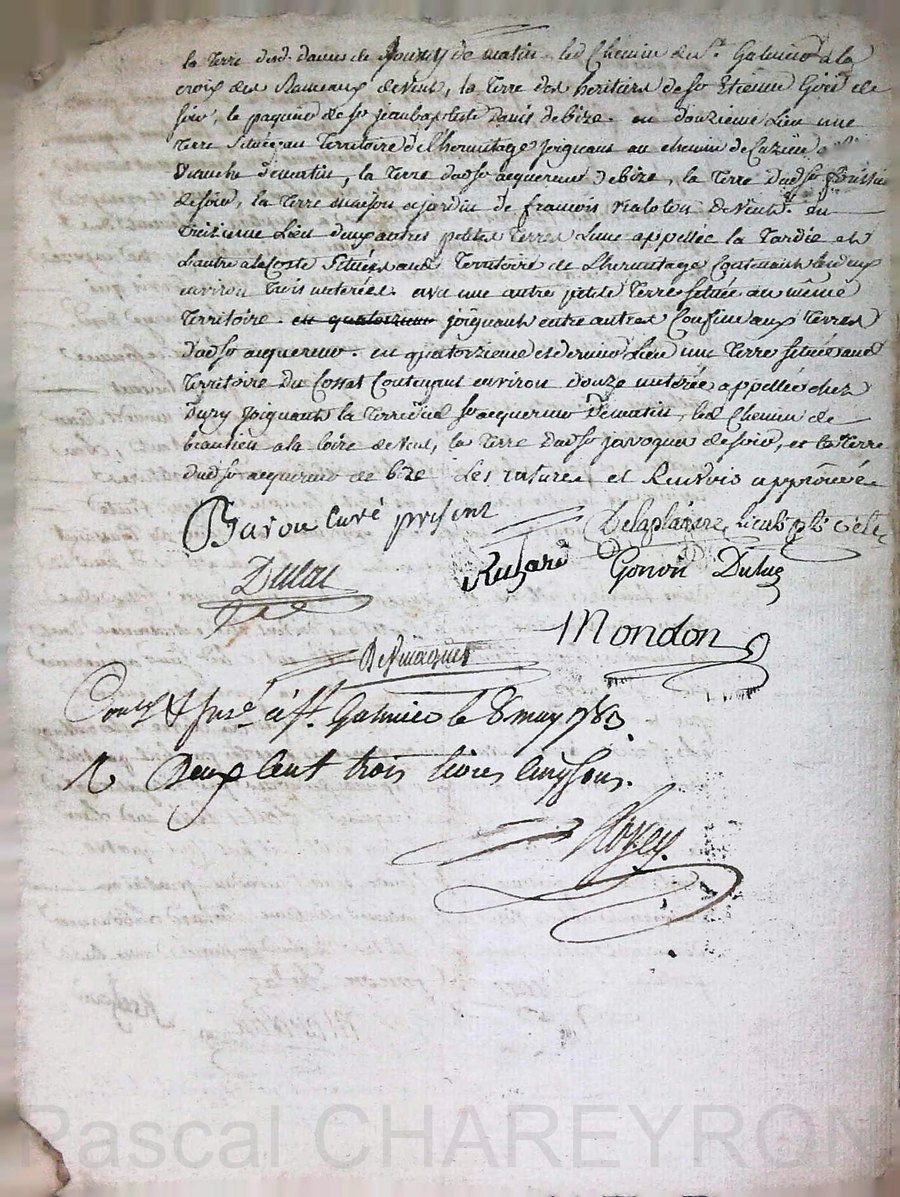 la Terre desd. dames de Jourcey de matin, led. Chemin de St. Galmier a la
croix des Rameaux de vent, la Terre des heritiers de sr Etienne Goin de
soir, le paquier de sr jeanbaptiste Danis de bize. en douzieme Lieu une
Terre Située au Territoire de l'hermitage joignant au chemin de
de matin, la Terre dud. sr acquereur de bize, la Terre dud. sr
de soir, la Terre maison et jardin de francois de vent. en
Treizieme Lieu deux autres petites Terres L'une appellée la Tardie et
L'autre a la Coste Situées aud. Territoire de L'hermitage Contenant les deux
environ Trois meterées. avec une autre petite Terre située au même
Territoire. en quatorzieme joignant entre autres Confins aux Terres
dud. sr acquereur. en quatorzieme et dernier Lieu une Terre située aud.
Territoire du Cossat Contenant environ douze meterée appellée chez
Dury joignant la Terre dud. sr acquereur de matin, led. Chemin de
a la loire de vent, la Terre dud. sr javogues de soir, et la Terre
dud. sr acquereur de bize les ratures et Renvois approuvée
Curé present Delaplagne
Dulac Richard Gonon Duluc
Mondon
Desmaques
Conlé & Insé. à St. Galmier le 8 may 1783.
R Deux Cent trois livres cinq sous.